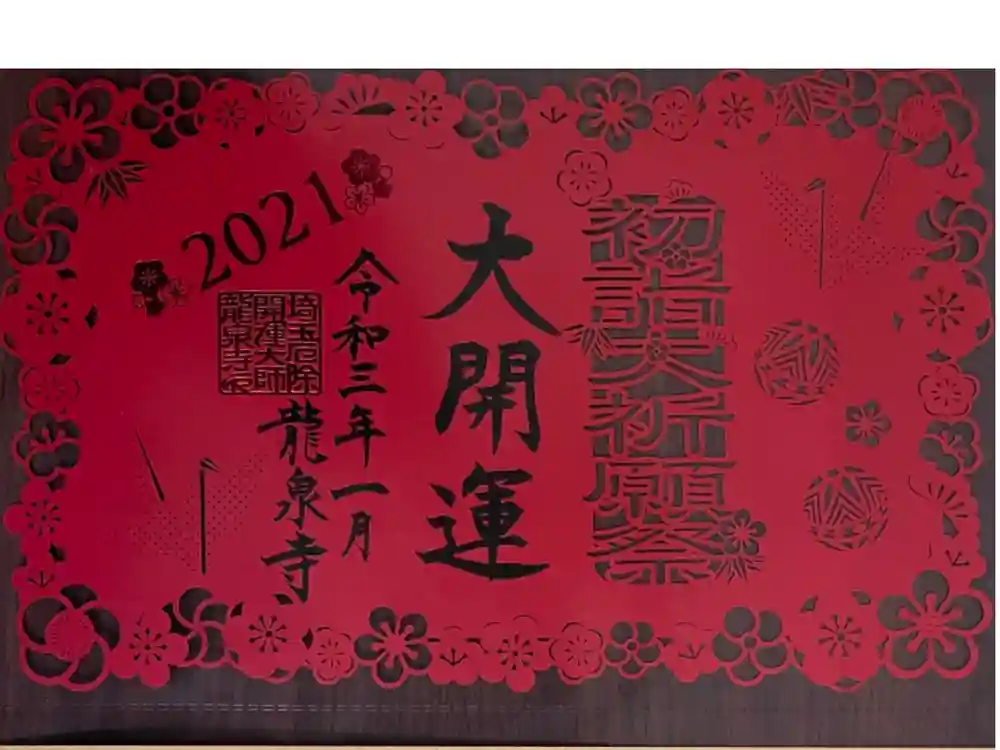 初詣大祈願祭
大開運
令和三年一月
2021
埼玉厄除
開運大師
龍泉寺印
龍泉寺